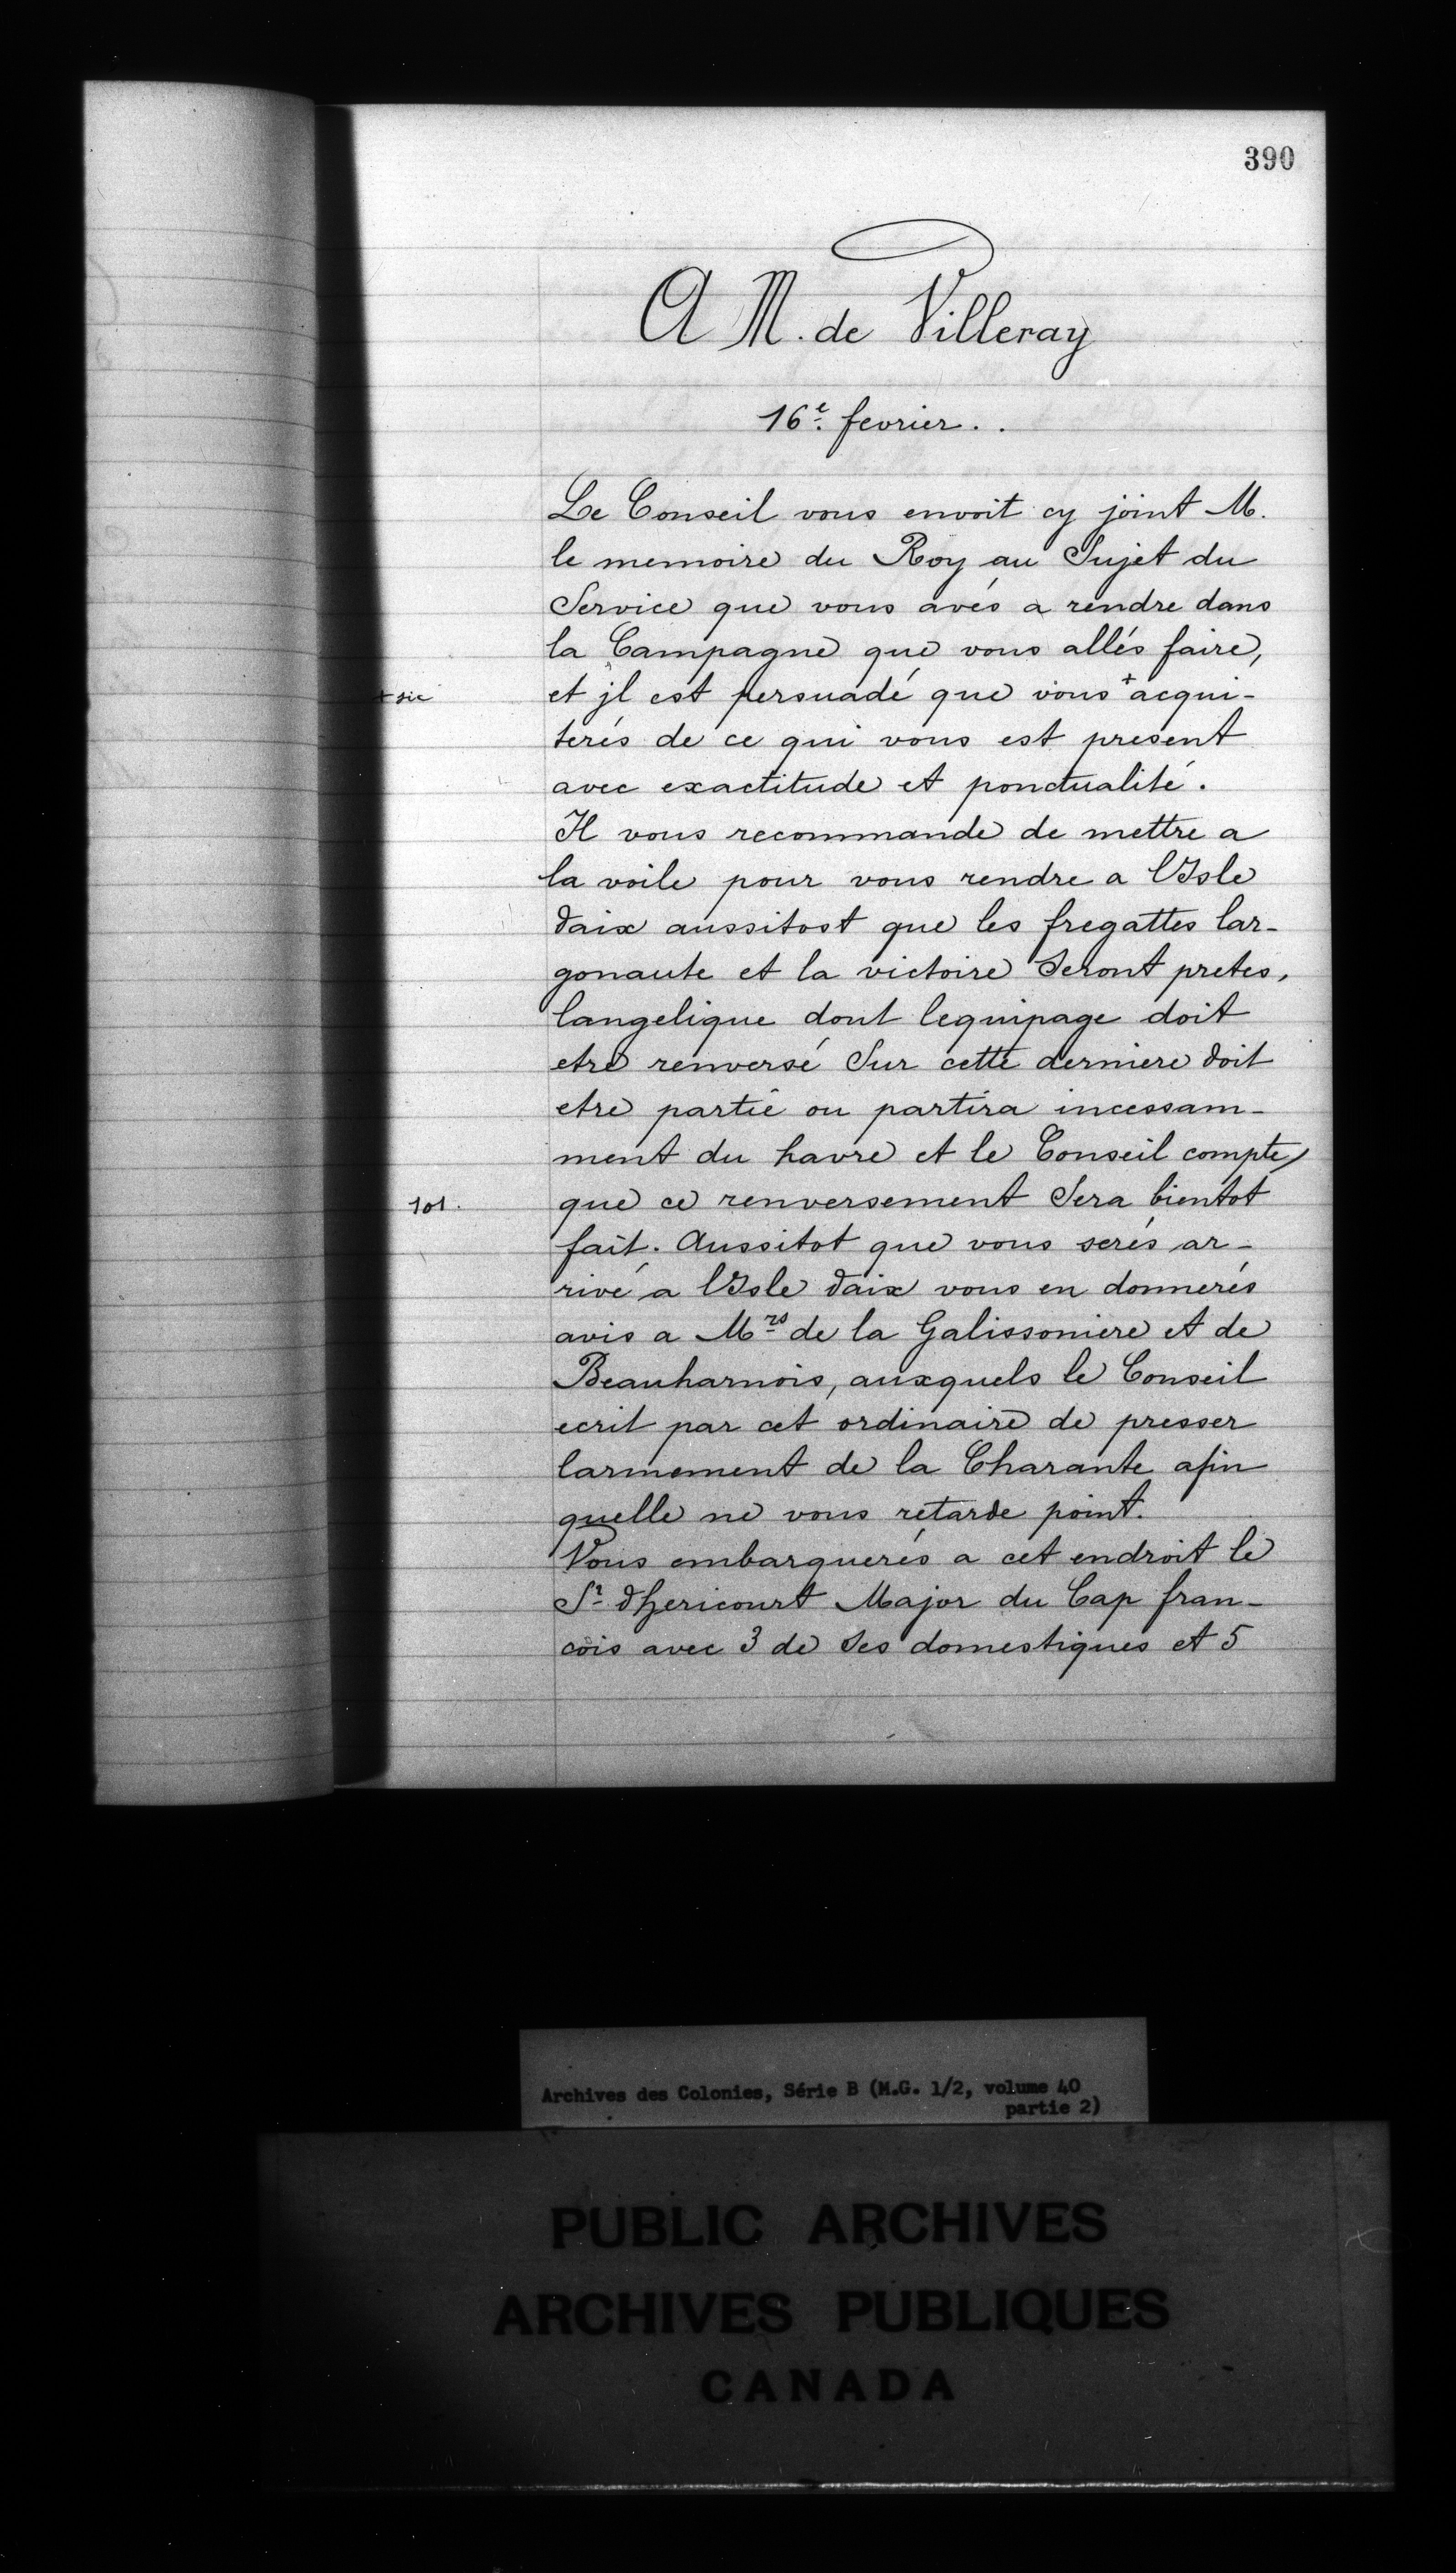 390
A M. de Villeray
16e. fevrier . .
Le Conseil vous envoit cy joint M.
le memoire du Roy au Sujet du
Service que vous avés a rendre dans
la Campagne que vous allés faire,
+ sic
et jl est persuadé que vous + acqui-
terés de ce qui vous est present
avec exactitude et ponctualité.
Il vous recommande de mettre a
la voile pour vous rendre a l'Isle
daix aussitost que les fregattes lar-
gonaute et la victoire Seront pretes,
langelique dont lequipage doit
etre renversé Sur cette derniere doit
etre partie ou partira incessam-
ment du havre et le Conseil compte
101.
que ce renversement Sera bientot
fait. Aussitot que vous serés ar-
rivé a l'Isle daix vous en donnerés
avis a Mrs de la Galissoniere et de
Beauharnois, auxquels le Conseil
ecrit par cet ordinaire de presser
larmement de la Charante afin
quelle ne vous retarde point.
Vous embarquerés a cet endroit le
Sr dhericourt Major du Cap fran-
cois avec 3 de Ses domestiques et 5
Archives des Colonies, Série B (M.G. 1/2, volume 40
partie 2)
PUBLIC ARCHIVES
ARCHIVES PUBLIQUES
CANADA